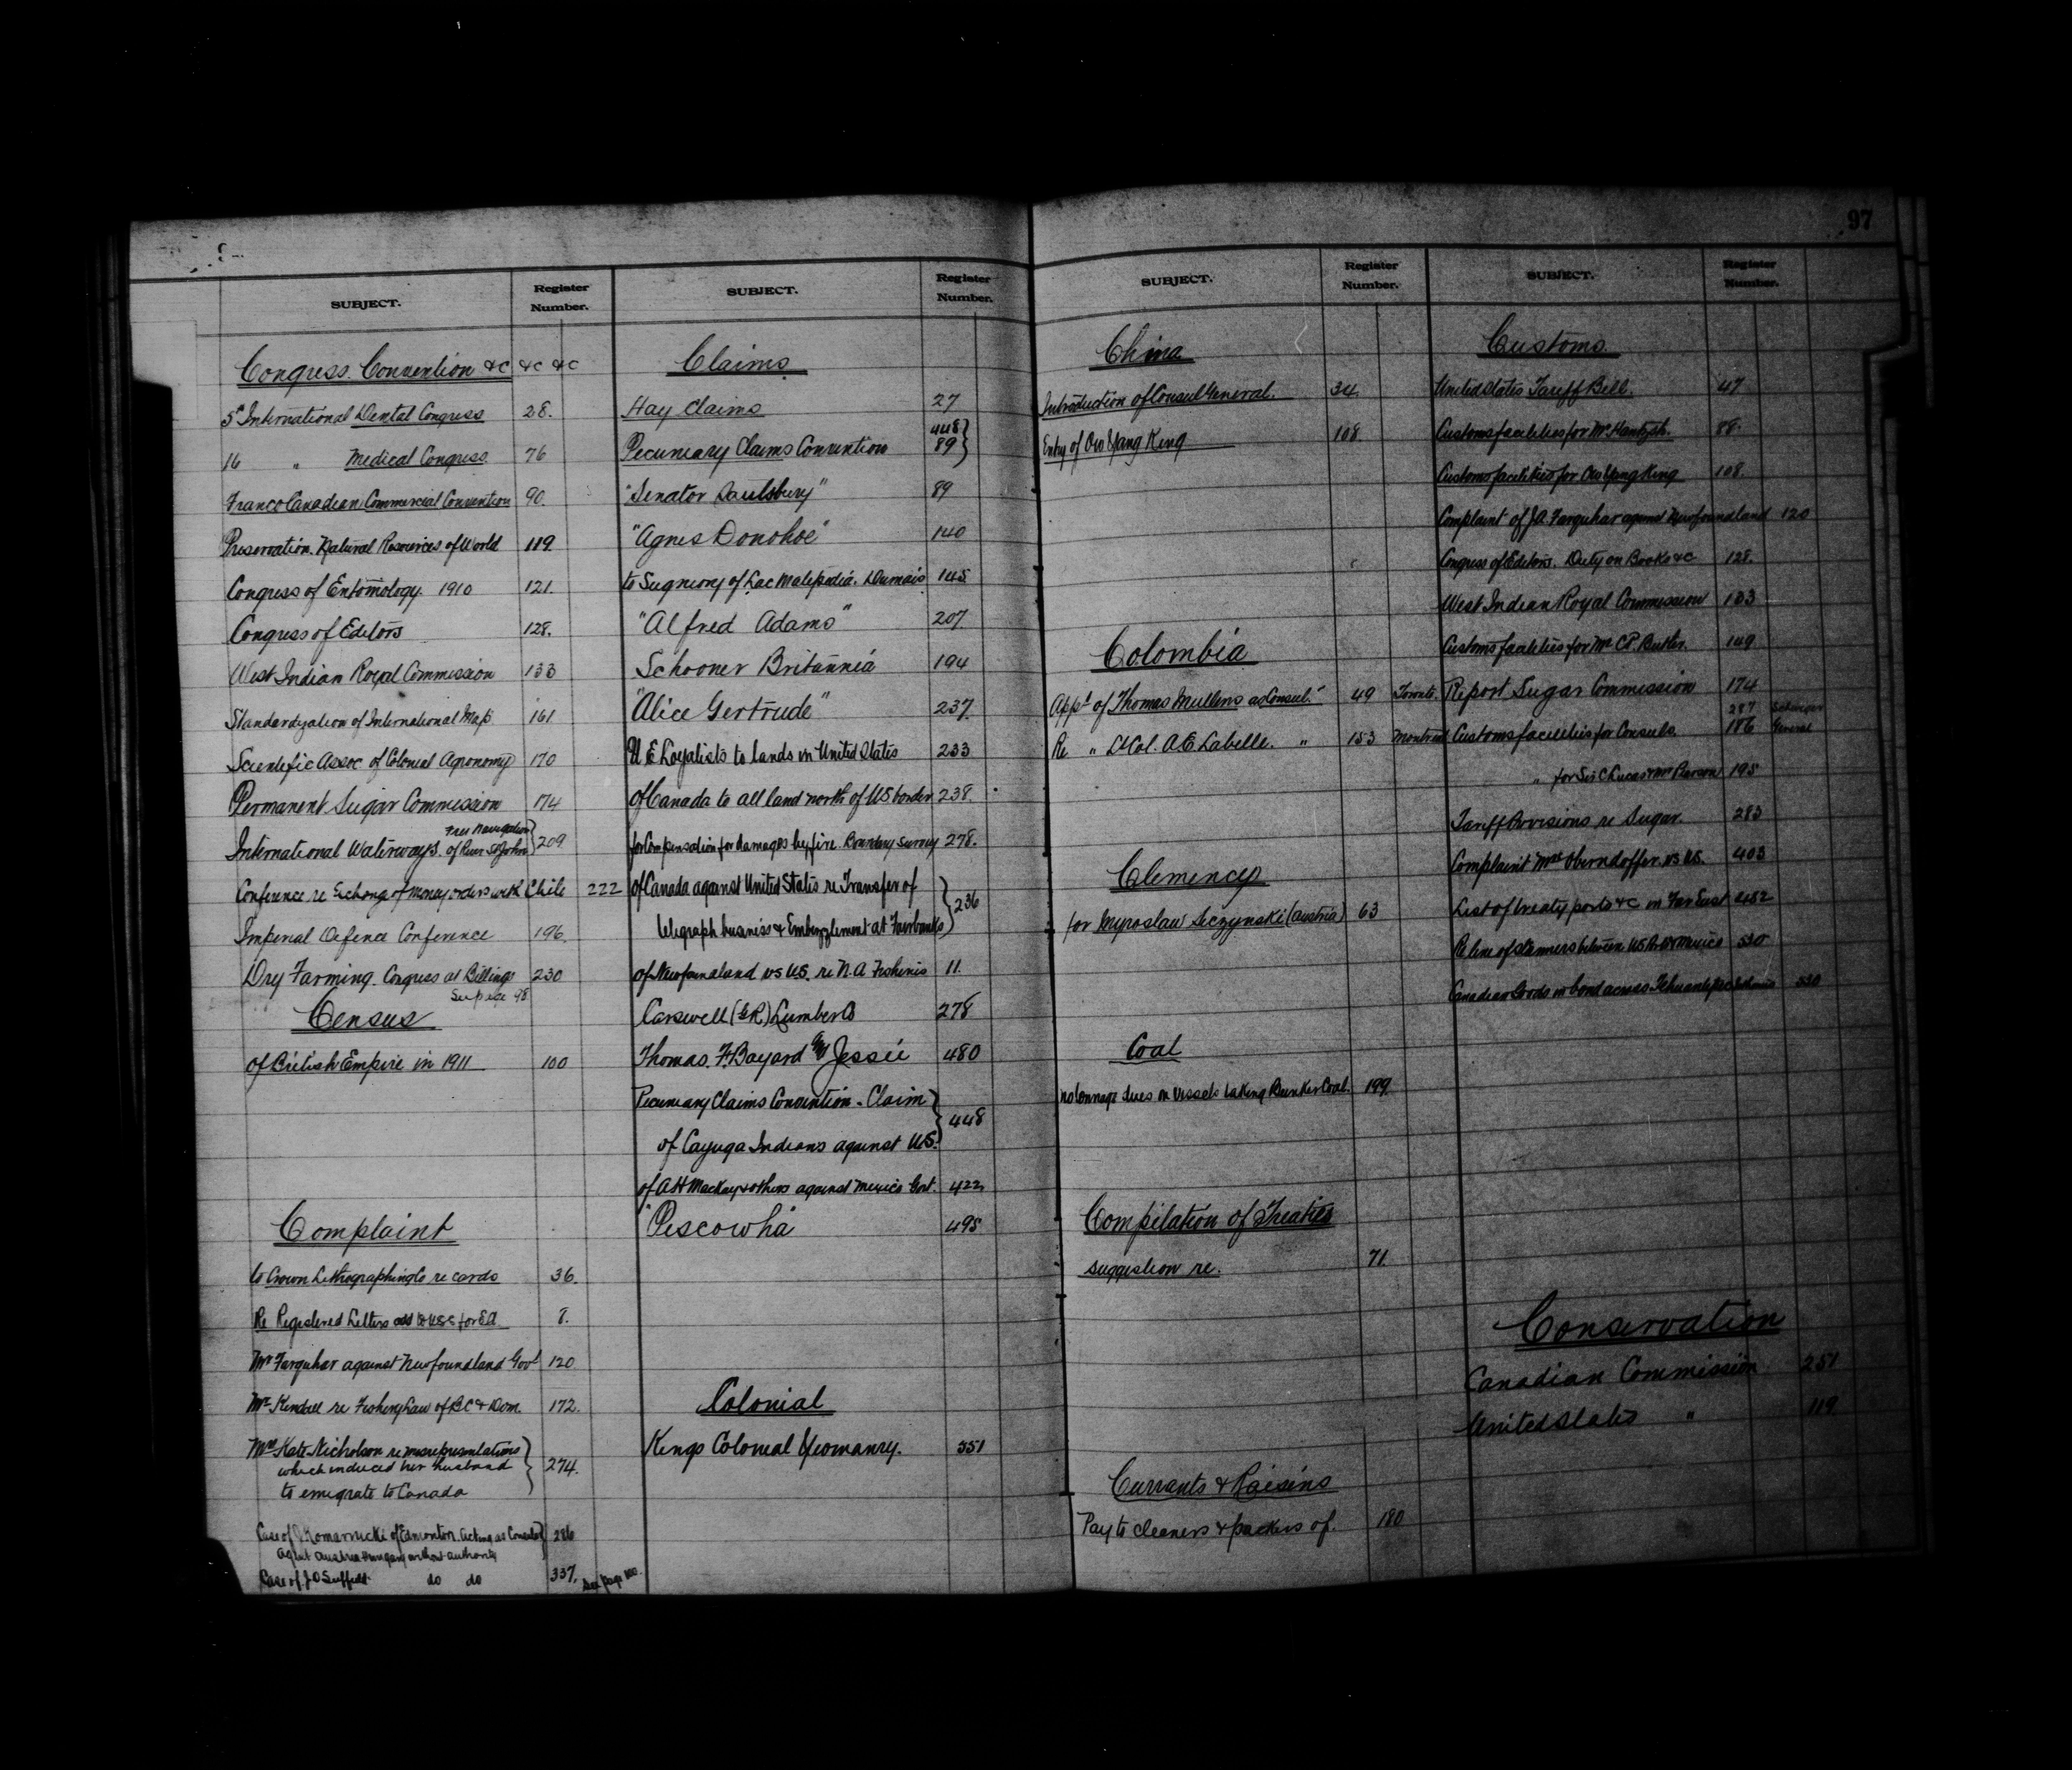 97
SUBJECT.
Register Number.
Congress. Convention &c &c &c
5th International Dental Congress 28.
16 " Medical Congress 76
Franco Canadian Commercial Convention 90.
Preservation. Natural Resources of World 119.
Congress of Entomology. 1910 121.
Congress of Editors 128.
West Indian Royal Commission 133
Standardization of International Map 161
Scientific Assoc of Colonial Agronomy 170
Permanent Sugar Commission 174
Free Navigation
International Waterways. of River St John } 209
Conference re Exchange of Money orders with Chile 222
Imperial Defence Conference 196.
Dry Farming Congress at Billings 230
See page 98
Census
of British Empire in 1911 100
Complaint
to Crown Lithographing Co re cards 36.
Re Registered Letters 8.
Mr Farquhar against Newfoundland Govt 120
Mr Kendall re Fishery Law of BC & Dom. 172.
Mrs Kate Nicholson re misrepresentations
which induced her husband
to emigrate to Canada } 274.
Case of J Komarnicki of Edmonton. acting as Consular } 286
agent Austria Hungary without authority
Case of J O do do 337. See page 100.
SUBJECT.
Register Number.
Claims
Hay Claims 27
448 }
Pecuniary Claims Convention 89 }
"Senator Saulsbury" 89
"Agnes Donohoe" 140
to Signiory of Lac Matapedia. Dumais 145
"Alfred Adams" 207
Schooner Britannia 194
"Alice Gertrude" 237.
U E Loyalists to lands in United States 233
of Canada to all land north of US border 238.
for Compensation for damages by fire. Boundary Survey 278.
of Canada against United States re Transfer of
telegraph business & Embezzlement at Fairbanks } 236
of Newfoundland vs US. re N.A Fisheries 11.
Carswell (&R) Lumber Co 278
Thomas. F. Bayard and Jessie 480
Pecuniary Claims Convention. Claim
of Cayuga Indians against US. } 448
of AH Mackay & others against Mexico Govt. 422
"Pescowha" 495
Colonial
Kings Colonial Yeomanry. 351
SUBJECT.
Register Number.
China
Introduction of Consul General. 34
Entry of Ow Yang King 108
Colombia
Appt of Thomas Mullens as Consul. 49 Toronto.
Re " Lt Col. A.E. Labelle. " 153 Montreal
Clemency
for Myroslaw Seczynski (Austria) 63
Coal
no tonnage dues on vessels taking Bunker Coal. 199
Compilation of Treaties
suggestion re. 71.
Currants & Raisins
Pay to cleaners & packers of. 180
SUBJECT.
Register Number.
Customs.
United States Tariff Bill. 47
Customs facilities for Mr Hantzsh. 88.
Customs facilities for Ow Yang King 108.
Complaint of JA Farquhar against Newfoundland 120
Congress of Editors. Duty on Books &c 128.
West Indian Royal Commission 133
Customs facilities for Mr CP. Butler. 149
Report Sugar Commission 174
287
Customs facilities for Consuls. 186 General
" for Sir C Lucas & Mr Pearson 195
Tariff Provisions re Sugar. 283
Complaint Mrs Oberndoffer vs US. 403
List of treaty ports &c in Far East 452
Re line of steamers between US & Mexico 530
Canadian Goods in bond across Tehuantepec 530
Conservation
Canadian Commission 251
United States " 119